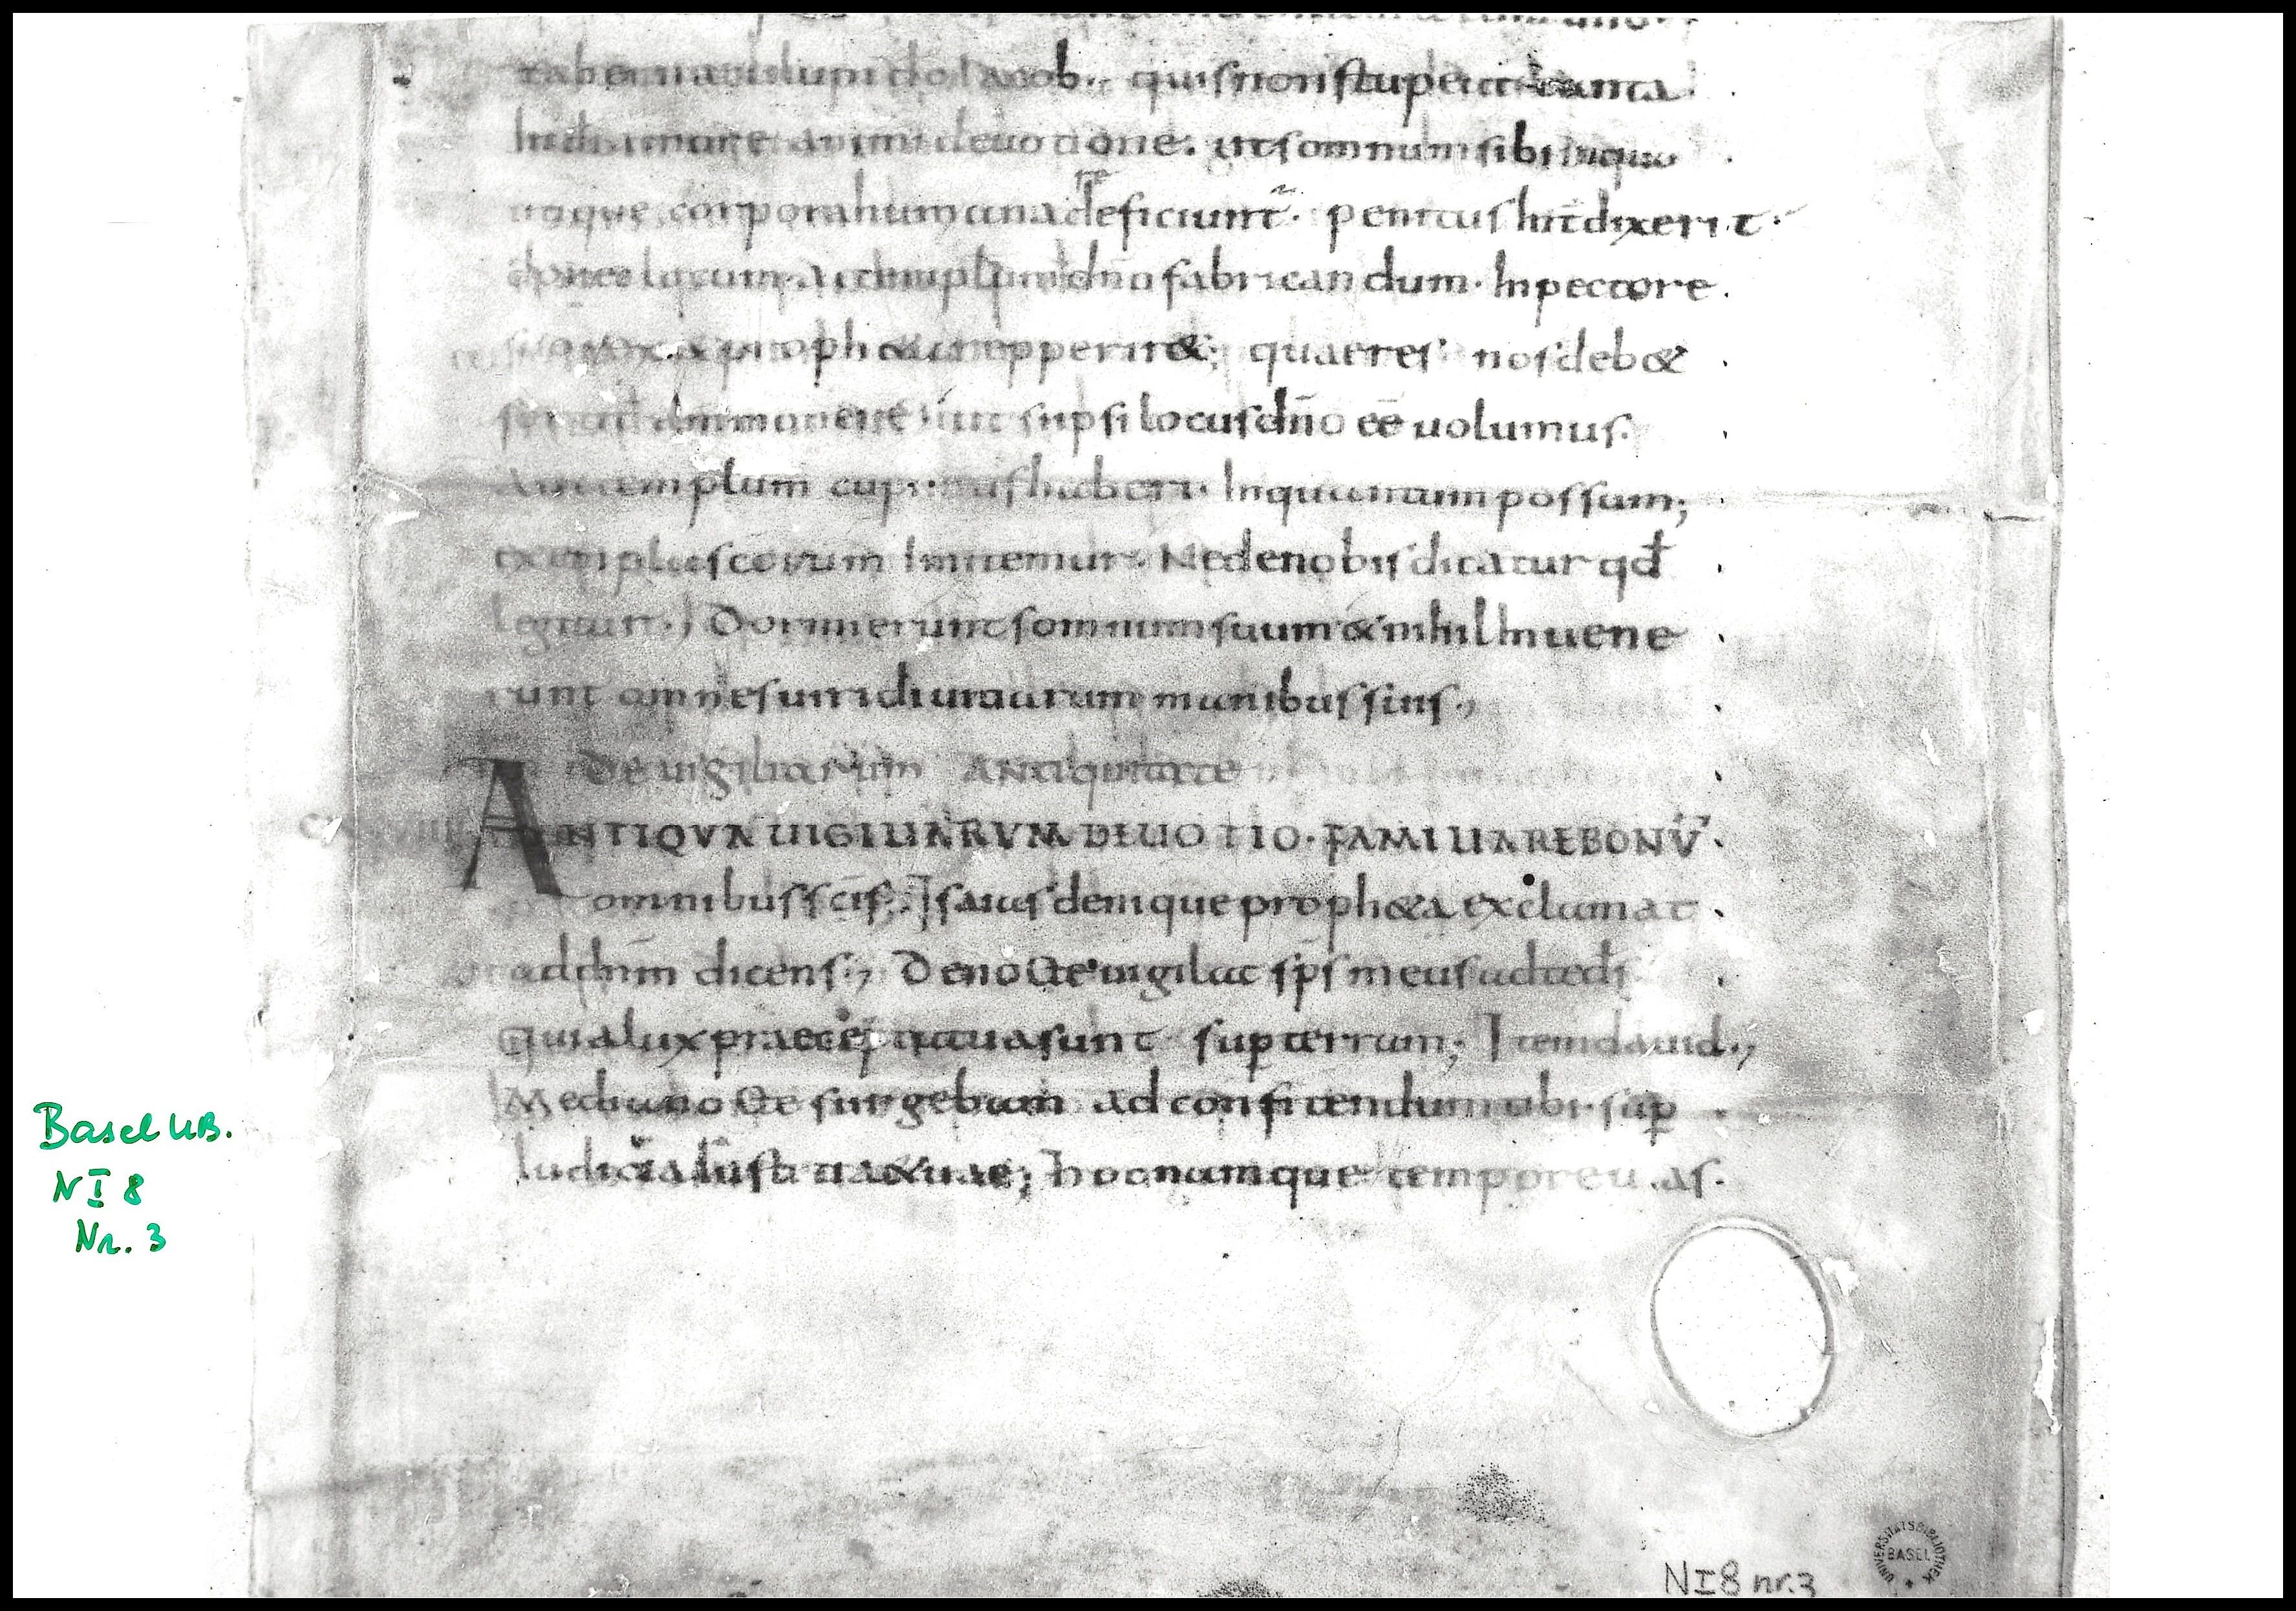 quis non stupeat tanta
animi deuotione. ut somnum sibi in quo
utique corpora humana deficiunt̃. penitus int̄dixerit.
donec locum aut templum dn̄o fabricandum. In pectore
rex & proph&a repperir&; quae res nos deb&
ammonere ut si ipsi locus dn̄o eē uolumus.
Aut templum cupimus haberi. In quantum possum;
exempla scorum Imitemur. Ne de nobis dicatur qđ
legitur., Dormierunt somnum suum & nihil Inuene
runt omnes uiri diuitiarum manibus suis.,
De uigiliarum Antiquitate
ANTIQVA UIGILIARVM DEUOTIO. FAMILIARE BONŪ.
omnibus sc̄is; Isaias denique proph&a exclamat
ad dn̄m dicens., De nocte uigilat sp̄s meus ad te dˉs
quia lux praecepta tua sunt sup terram; Item dauid.,
Media nocte surgebam ad confitendum tibi. sup
Iudicia Iustitiae tuae; hoc namque tempore u.as.
Basel UB.
N I 8
Nr. 3
N I 8 nr. 3
UNIVERSITÄTSBIBLIOTHEK
BASEL